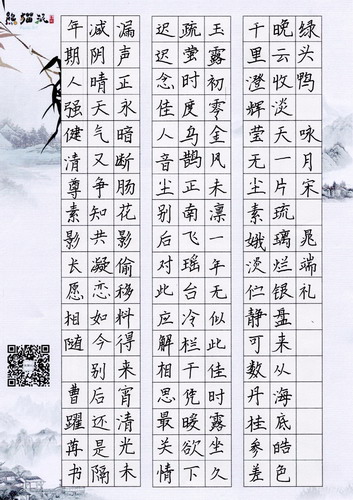 绿头鸭 咏月宋 晁端礼
晚云收淡天一片琉璃烂银盘来从海底皓色
千里澄辉莹无尘素娥淡伫静可数丹桂参差
玉露初零金风未凛一年无似此佳时露坐久
疏萤时度乌鹊正南飞瑶台冷栏干凭暖欲下
迟迟念佳人音尘别后对此应解相思最关情
漏声正永暗断肠花影偷移料得来宵清光未
减阴晴天气又争知共凝恋如今别后还是隔
年期人强健清尊素影长愿相随 曹躍苒书